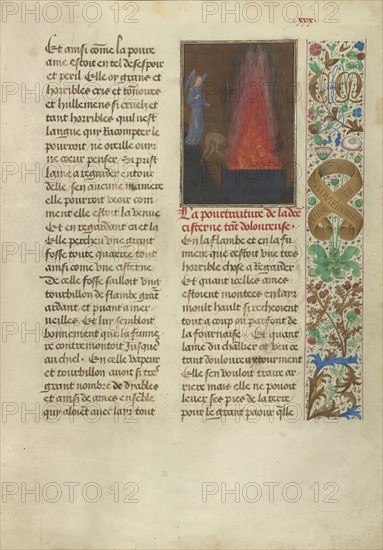 .xxx.
Et ainsi com̄e la poure
ame estoit en tel desespoir
et peril Elle oy grans et
horribles cris et tōnoires
et hullemens si cruelz et
tant horribles qui nest
langue quy Racompter le
pourroit ne oreille ouir
ne coeur penser Si prist
lame a regarder entour
delle sen aucune maniere
elle pourroit veoir com
ment elle estoit la venue
Et en regardant ca et la
Elle percheu vne grant
fosse toute quarree tout
ainsi come vne cisterne
De celle fosse sailloit vng
tourbillon de flambe grāt
ardant et puant a mer
ueilles Et luy sembloit
bonnement que la fume
re contremontoit Jusques
au ciel En celle vapeur
et tourbillon auoit si tres
grant nombre de dyables
et ainsi de ames enseble
quy aloiēt auec lair tout
La pourtraiture de ladicte
cisterne tāt doloureuse
En la flambe et en la fu
miere que cestoit vne tres
horrible chose a regarder
Et quant icelles ames
estoient montees en lair
moult hault si recheoient
tout a coup ou parfont de
la fournaise Et quant
lame du chālier ot veu ce
tant douloureux tourment
Elle sen vouloit traire ar
riere mais elle ne pouoit
leuer ses pies de la terre
pour le grant paour qlle
PHOTO12